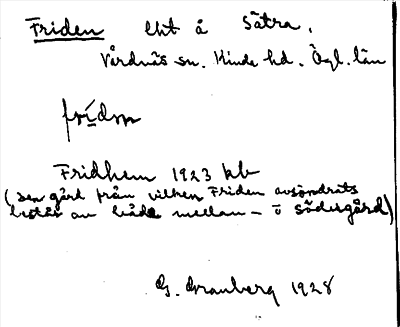 Friden lht å Sätra,
Vårdnäs sn. Kinda hd. Ögl. län
frídən
Fridhem 1923 kb
(Den gård från vilken Friden avsöndrats
består av både mellan- o södergård)
G. Granberg 1928